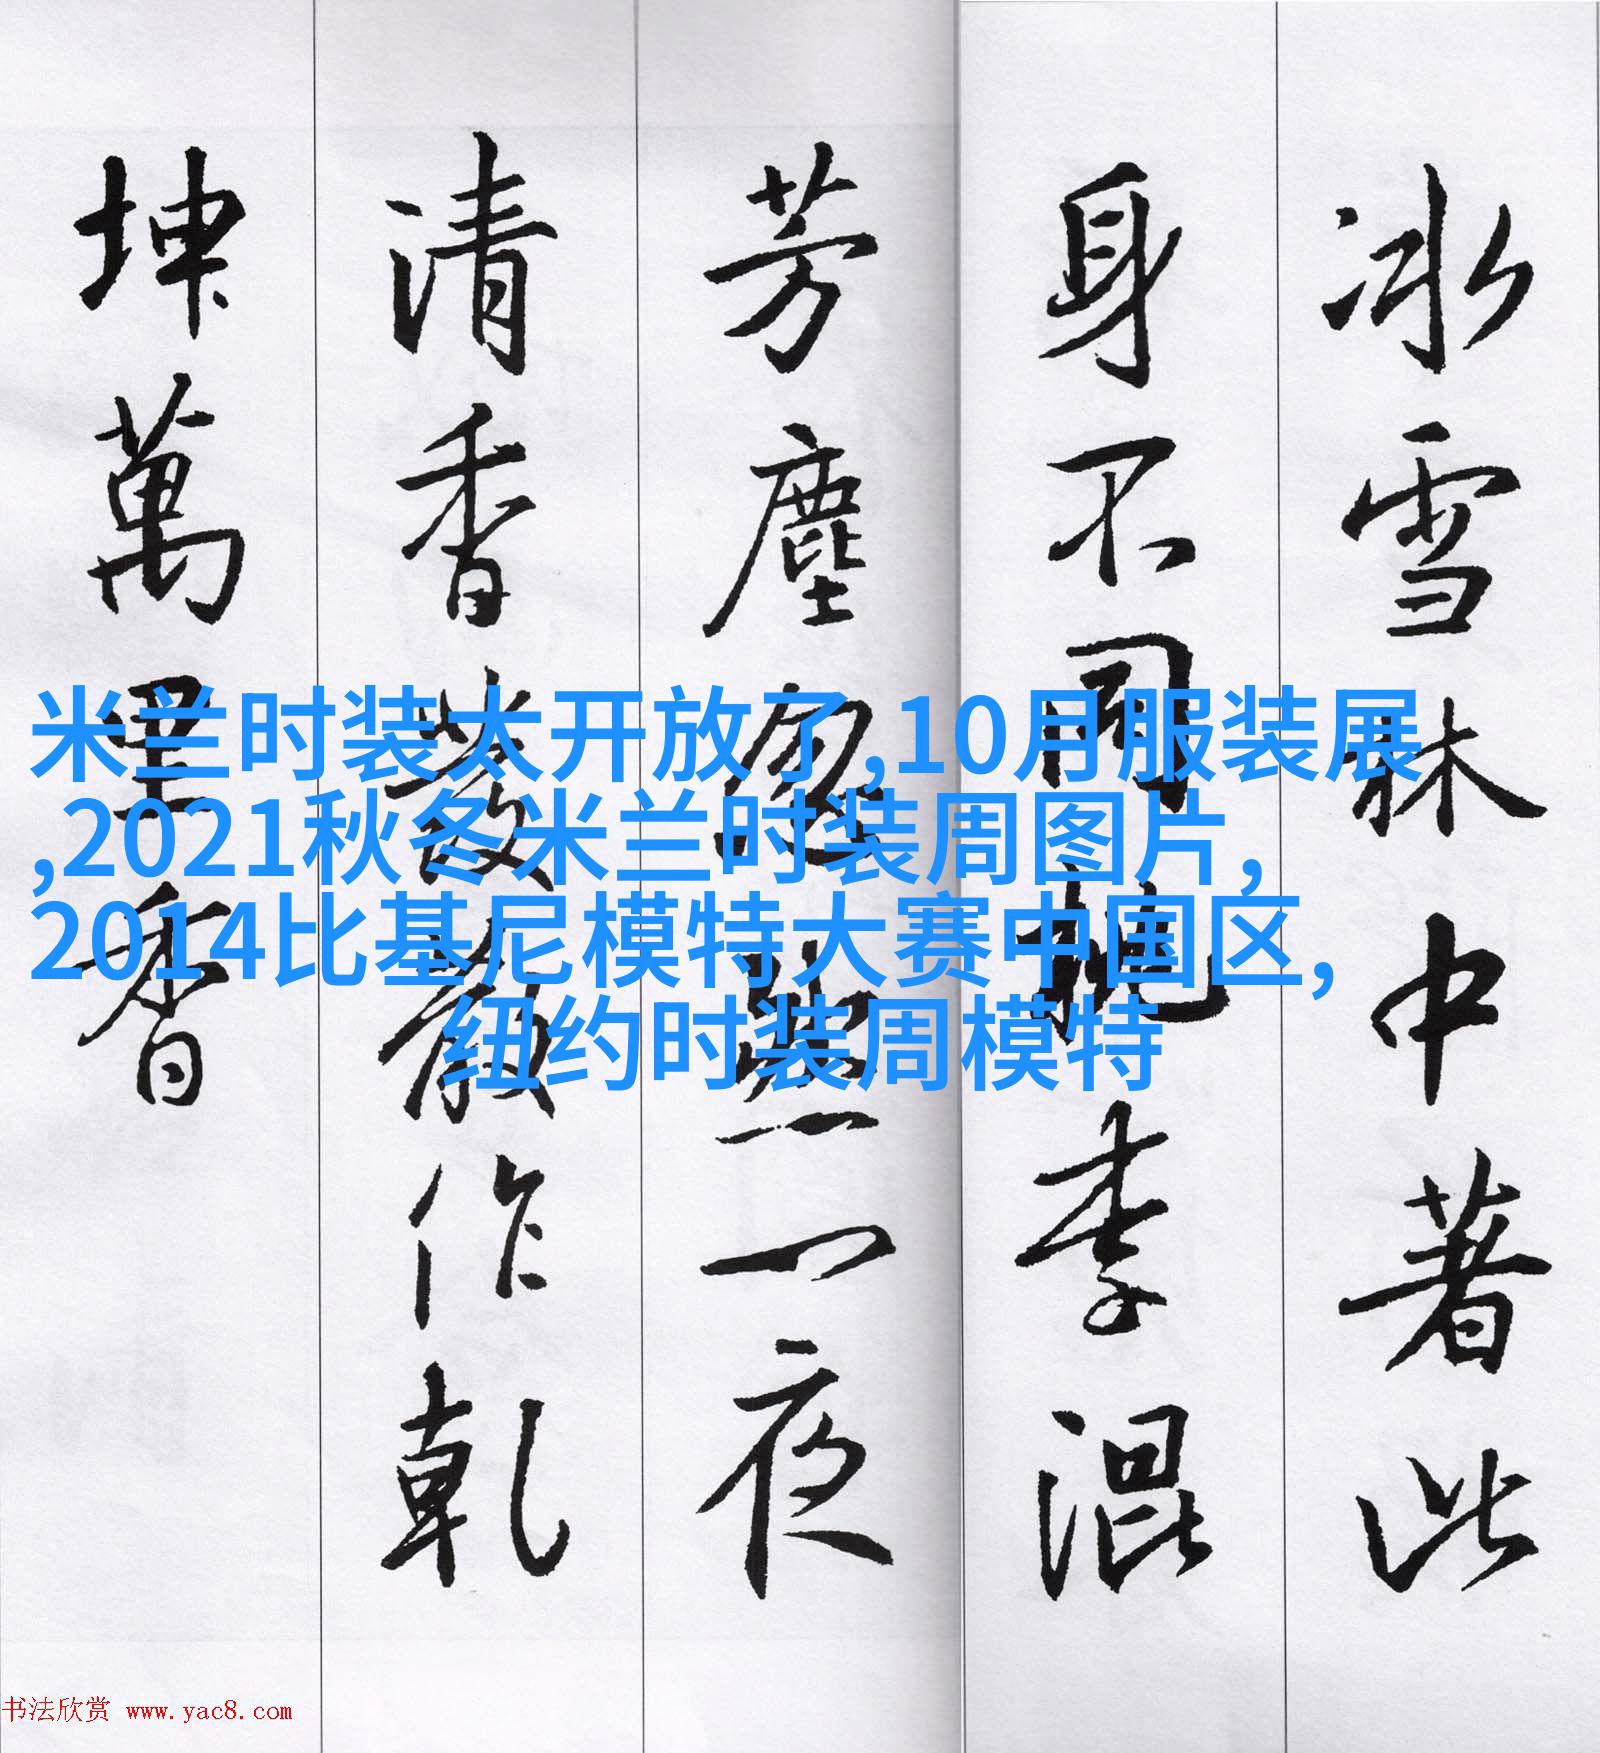 冰雪林中著此
身不同桃李混
芳塵忽然一夜
清香發散作乾
坤萬里香
米兰时装太开放了,10月服装展
,2021秋冬米兰时装周图片,
2014比基尼模特大赛中国区,
纽约时装周模特
书法欣赏 www.yac8.com